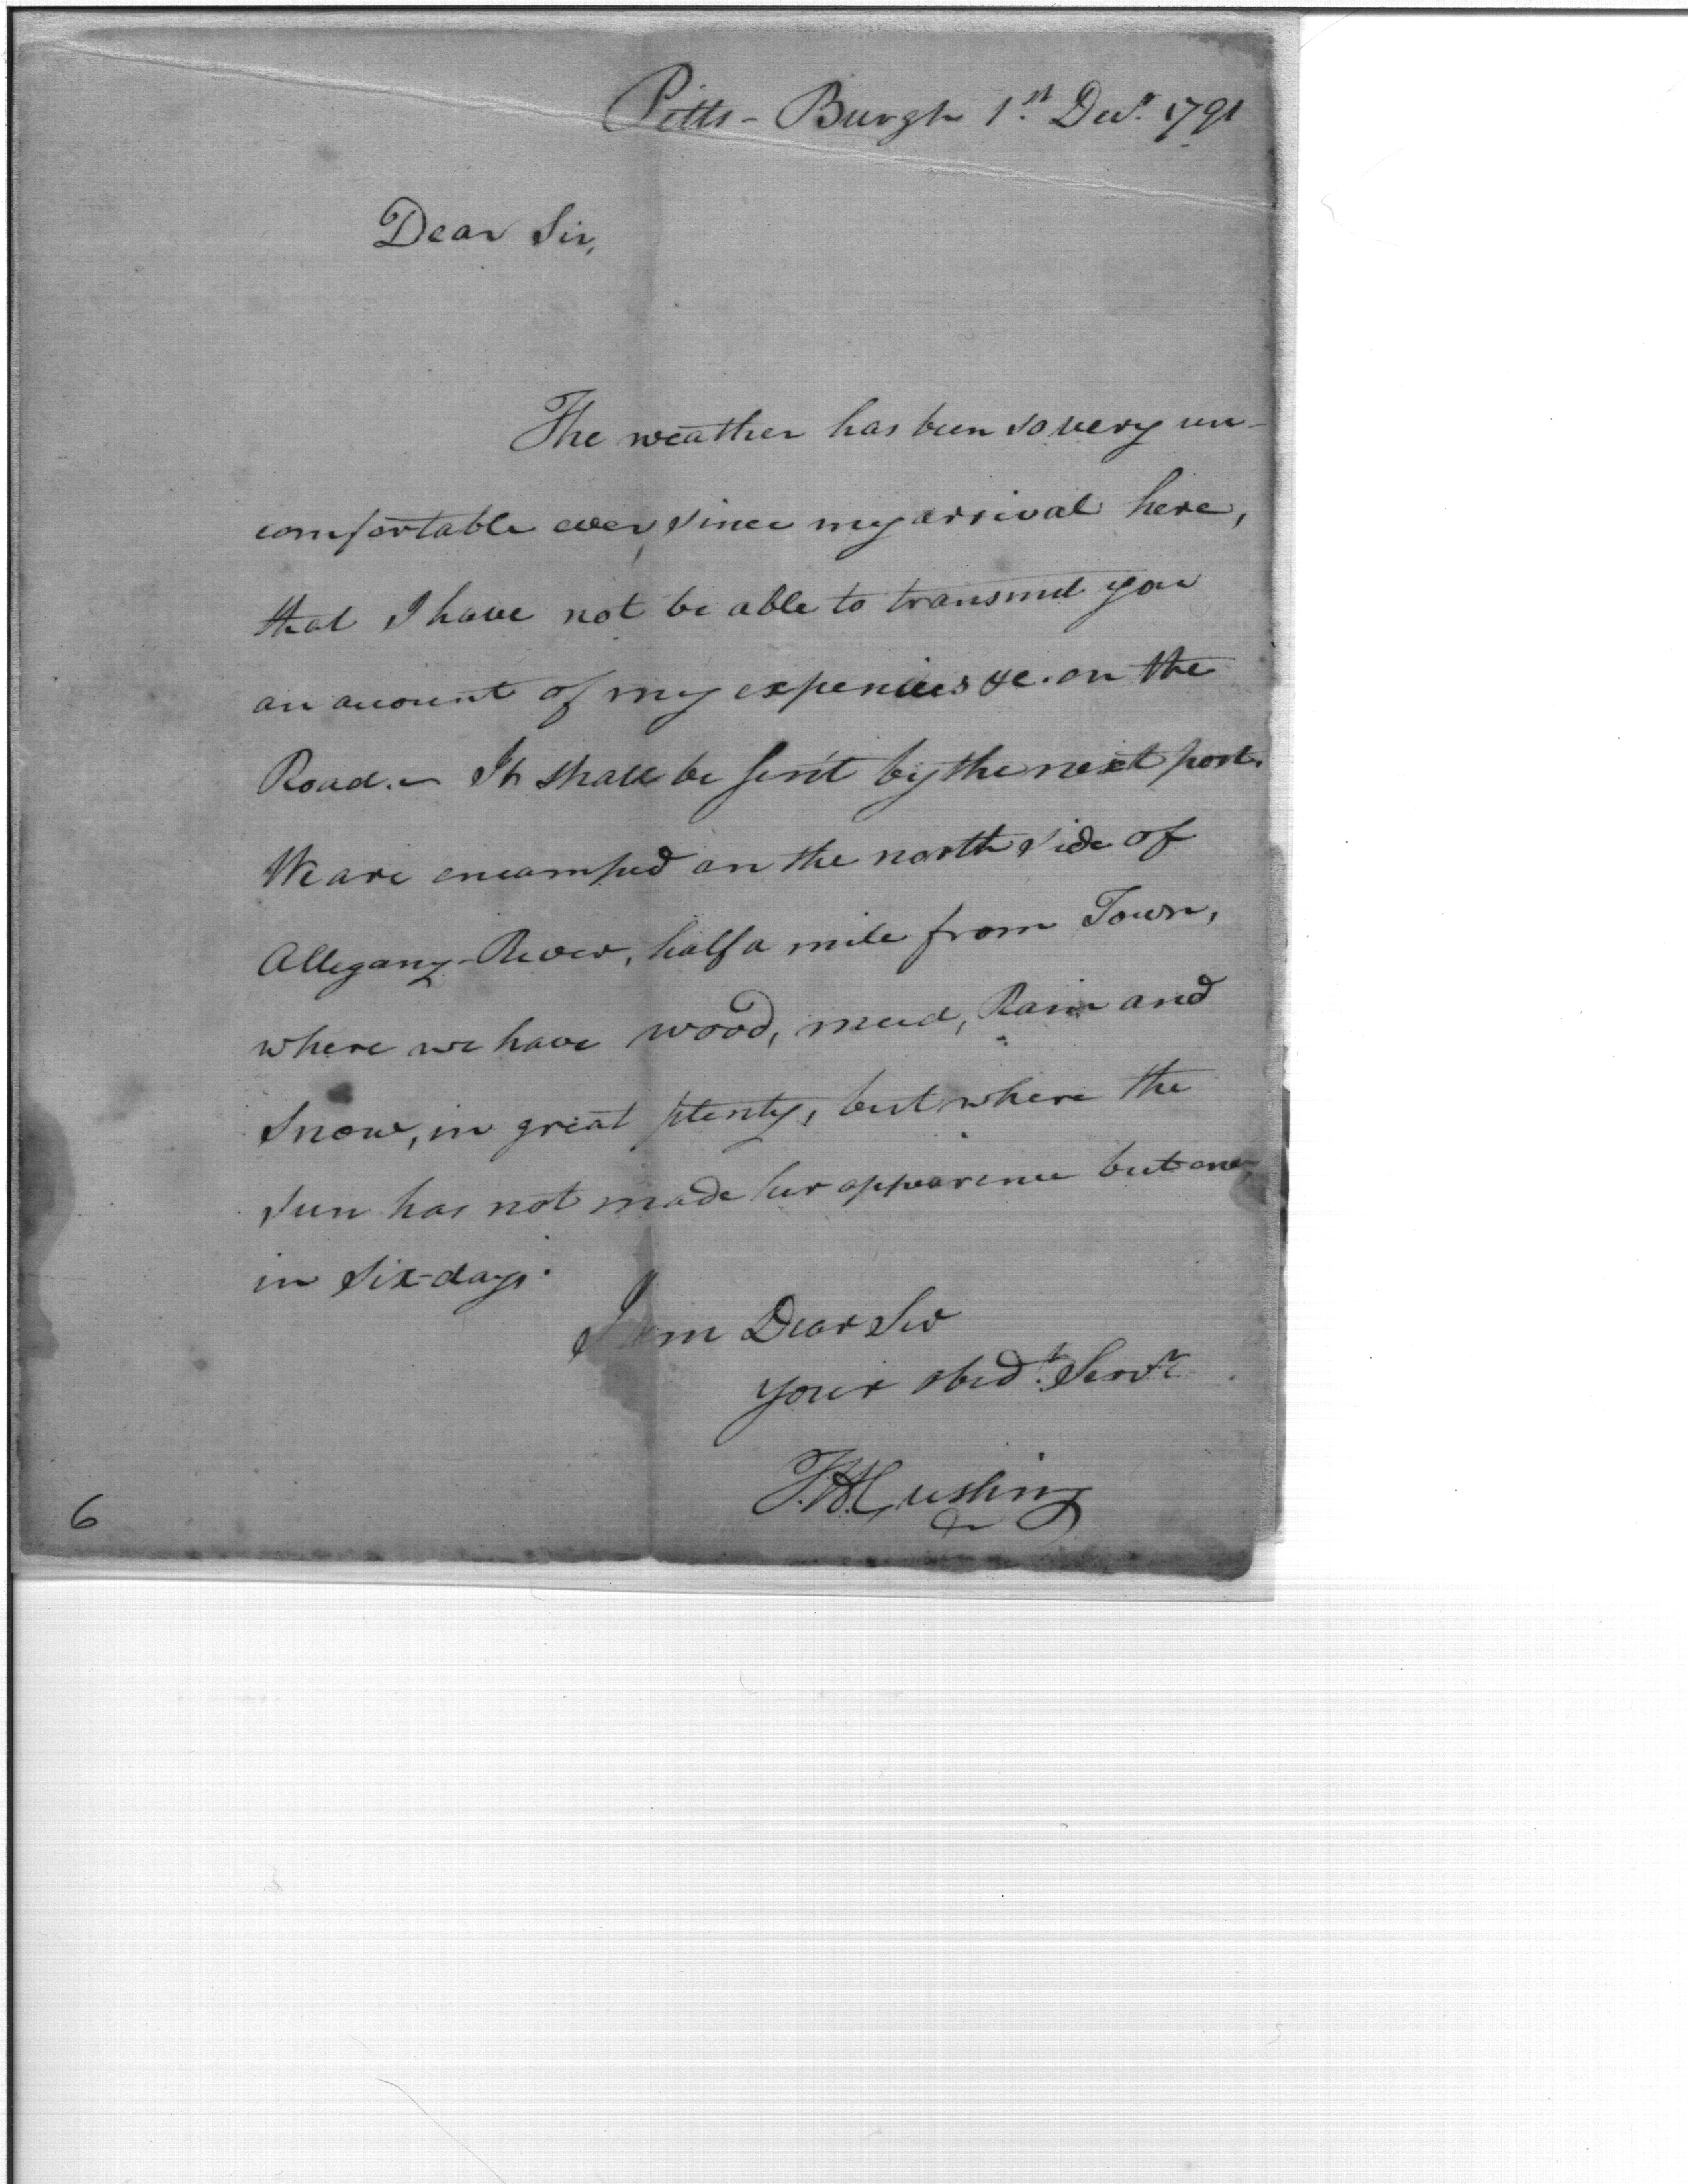 Pitts-Burgh 1st. Decr. 1791
Dear Sir,
The weather has been so very un-
comfortable ever, since my arrival here,
that I have not be able to transmit you
an account of my expences &c. on the
Road. – It shall be sent by the next post.
We are encamped on the north side of
Allegany-River, half a mile from Town,
where we have wood, mud, Rain and
Snow, in great plenty, but where the
sun has not made her appearence but once,
in six-days.
I am Dear Sir
your obedt. Servt.
T.H. Cushing
6